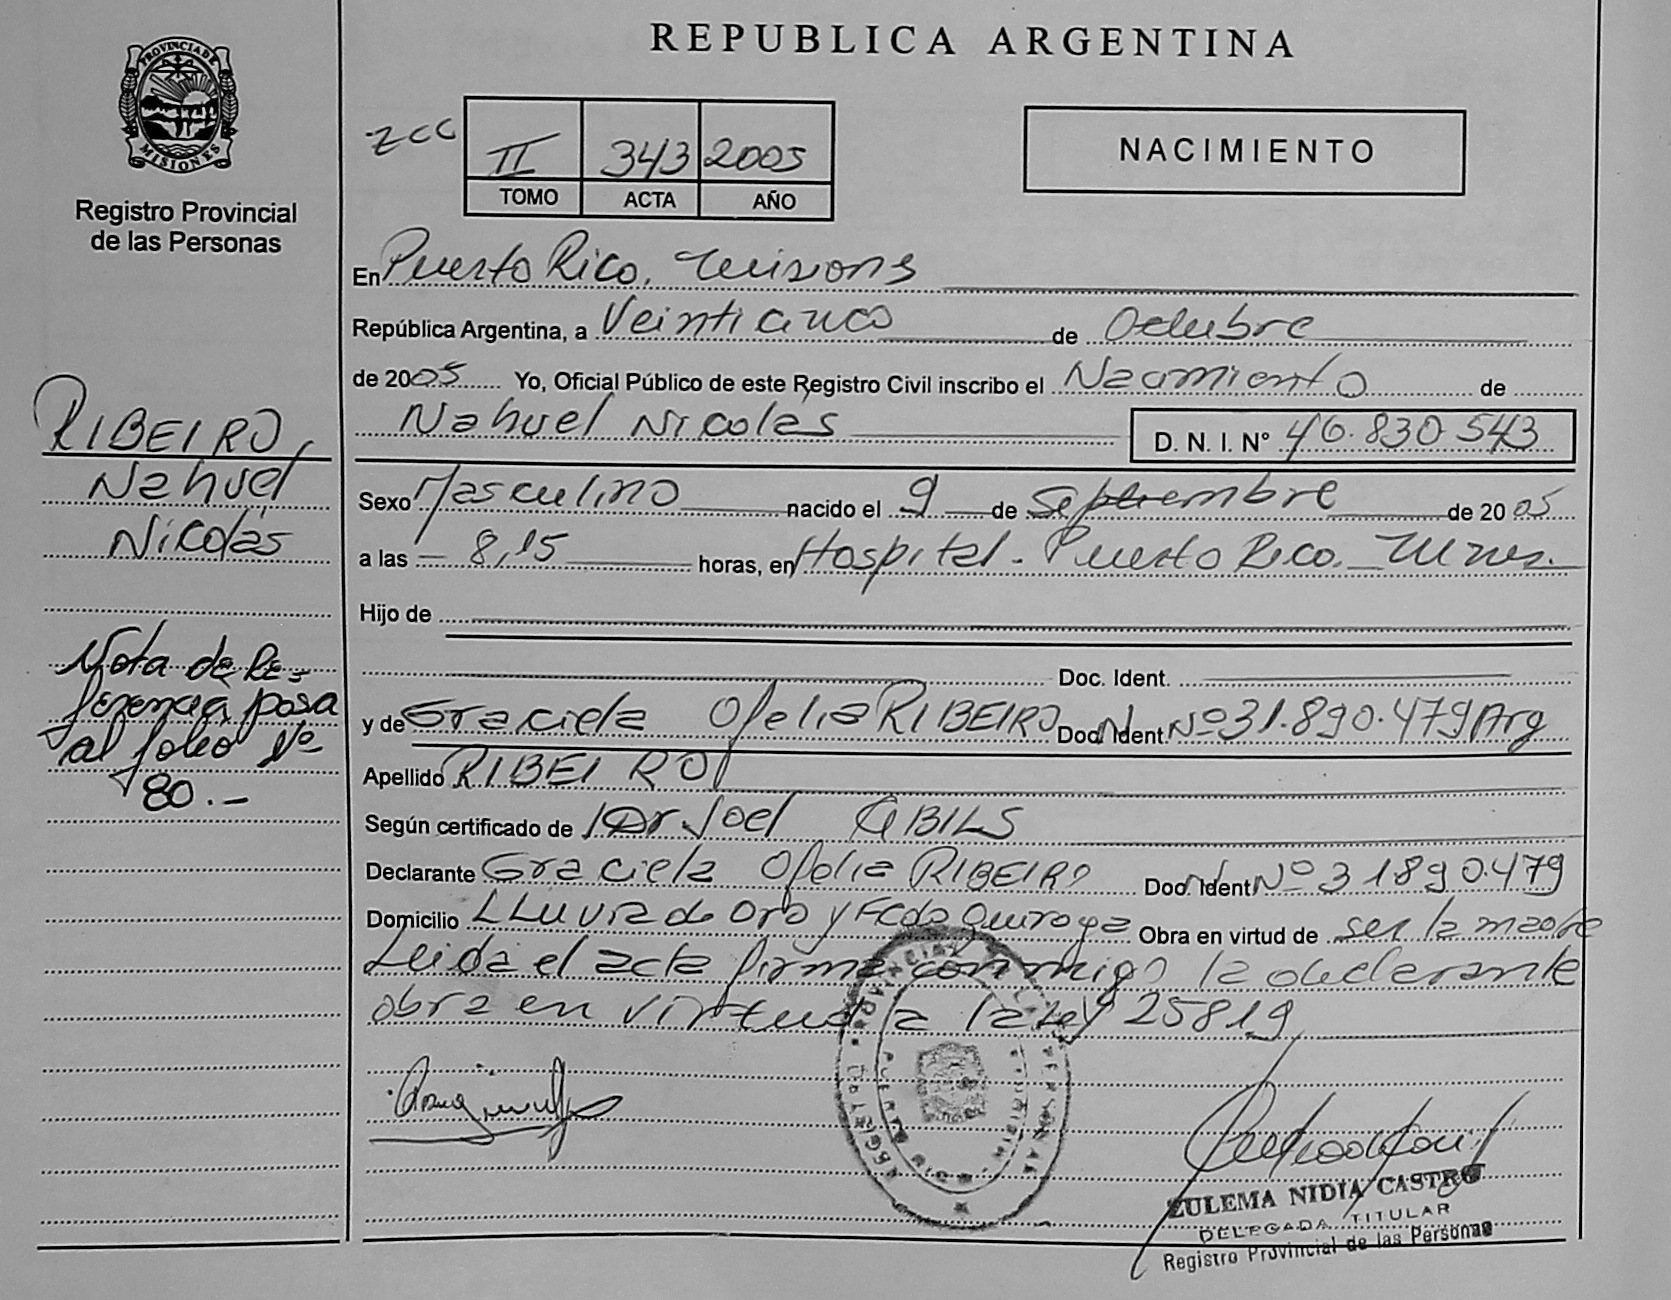 PROVINCIA DE
MISIONES
Registro Provincial
de las Personas
RIBEIRO,
Nahuel
Nicolás
Nota de Re-
ferencia pasa
al folio Nº
80.-
REPUBLICA ARGENTINA
ZCC II 343 2005
TOMO ACTA AÑO
NACIMIENTO
En Puerto Rico, Misiones
República Argentina, a Veinticinco de Octubre
de 2005 Yo, Oficial Público de este Registro Civil inscribo el Nacimiento de
Nahuel Nicolás D. N. I. Nº 46.830.543
Sexo Masculino nacido el 9 de Septiembre de 2005
a las 8,15 horas, en Hospital - Puerto Rico. Mnes.
Hijo de
Doc. Ident.
y de Graciela Ofelia RIBEIRO Doc. Ident. Nº 31.890.479 Arg
Apellido RIBEIRO
Según certificado de Dr Joel
Declarante Graciela Ofelia RIBEIRO Doc. Ident. Nº 31890.479
Domicilio LLuvia de Oro y Fcdo Quiroga Obra en virtud de ser la madre
Leida el acta firma conmigo la declarante
obra en virtud a la Ley 25819
ZULEMA NIDIA CASTRO
DELEGADA TITULAR
Registro Provincial de las Personas